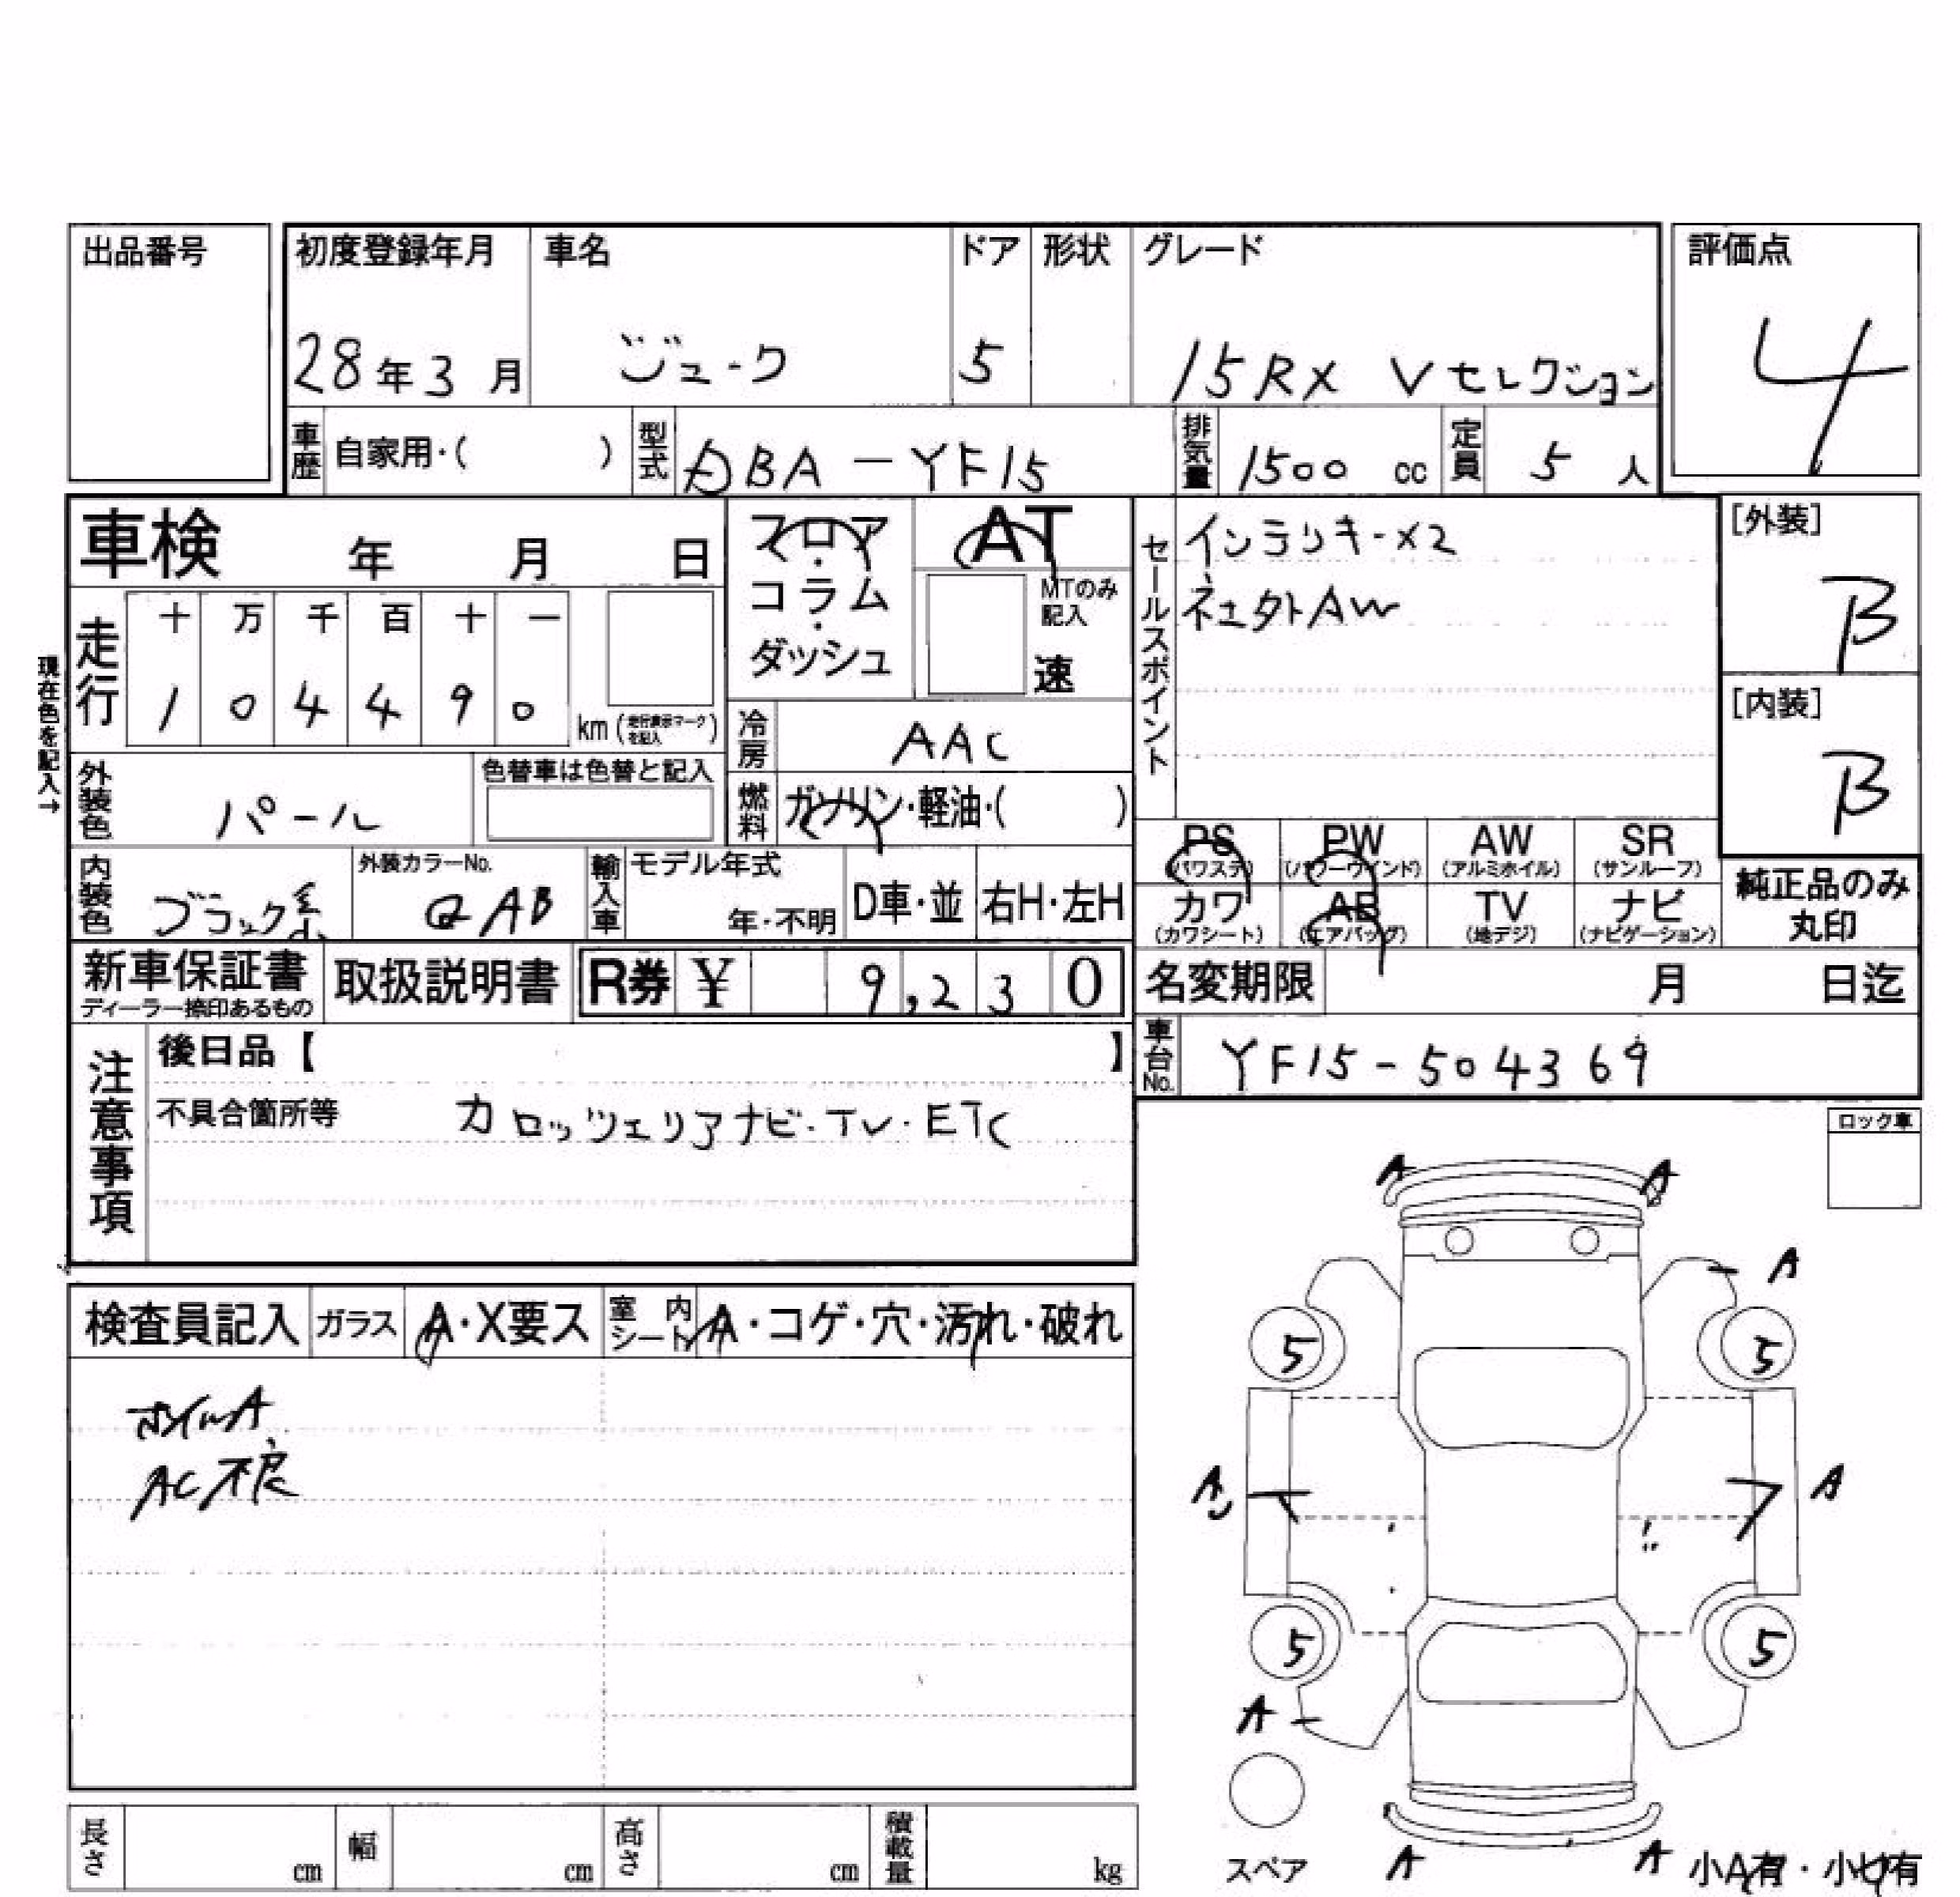 出品番号
初度登録年月 車名 ドア 形状 グレード 評価点
28年3月 ジューク 5 15RX Vセレクション 4
車歴 自家用・( ) 型式 DBA-YF15 排気量 1500 cc 定員 5 人
車検 年 月 日
フロア・コラム・ダッシュ
AT
MTのみ記入
速
セールスポイント
インテリキーX2
AW
[外装]
B
[内装]
B
現在色を記入→
走行 十 万 千 百 十 一
1 0 4 4 9 0 km(走行表示マークを記入)
冷房 AAC
外装色 パール
色替車は色替と記入
燃料 ガソリン・軽油・( )
PS PW AW SR
(パワステ) (パワーウインド) (アルミホイル) (サンルーフ)
カワ AB TV ナビ
(カワシート) (エアバッグ) (地デジ) (ナビゲーション)
純正品のみ
丸印
内装色 ブラック系
外装カラーNo.
QAB
輸入車 モデル年式
年・不明
D車・並 右H・左H
新車保証書
ディーラー捺印あるもの
取扱説明書 R券 ¥ 9,230
名変期限 月 日迄
車台No. YF15-504369
注意事項
後日品【 】
不具合箇所等 カロッツェリアナビ・TV・ETC
ロック車
検査員記入 ガラス A・X要ス 室内シート A・コゲ・穴・汚れ・破れ
ホイールA
AC不良
A A
A
5 5
A A
5 5
A
スペア
A A
小A有・小U有
長さ cm 幅 cm 高さ cm 積載量 kg